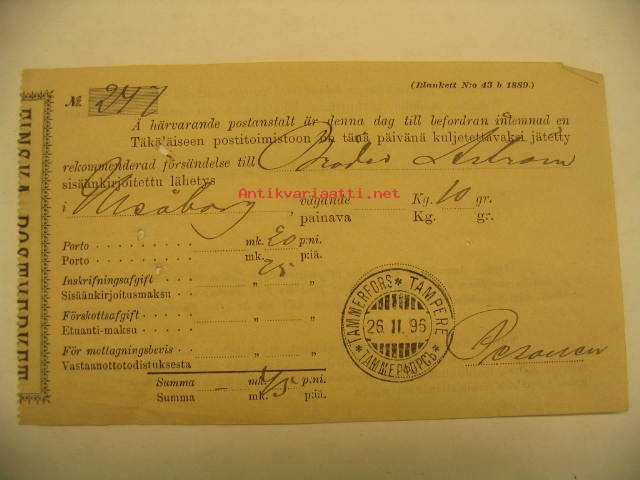 (Blankett N:o 43 b 1889.)
№ 247
Å härvarande postanstalt är denna dag till befordran inlemnad en
Täkäläiseen postitoimistoon on tänä päivänä kuljetettavaksi jätetty
rekommenderad försändelse till Bröder Åström
sisäänkirjoitettu lähetys
i Uleåborg, vägande Kg. 10 gr.
painava Kg. gr.
Antikvariaatti.net
Porto mk. 20 p:ni.
Porto mk. 25 p:iä.
Inskrifningsafgift " "
Sisäänkirjoitusmaksu "
Förskottsafgift " "
Etuanti-maksu "
För mottagningsbevis " "
Vastaanottotodistuksesta
Summa — mk. 45 p:ni.
Summa mk. p:iä.
TAMMERFORS * TAMPERE
26. II. 96
* ТАММЕРФОРСЪ *
FINSKA POSTVERKET